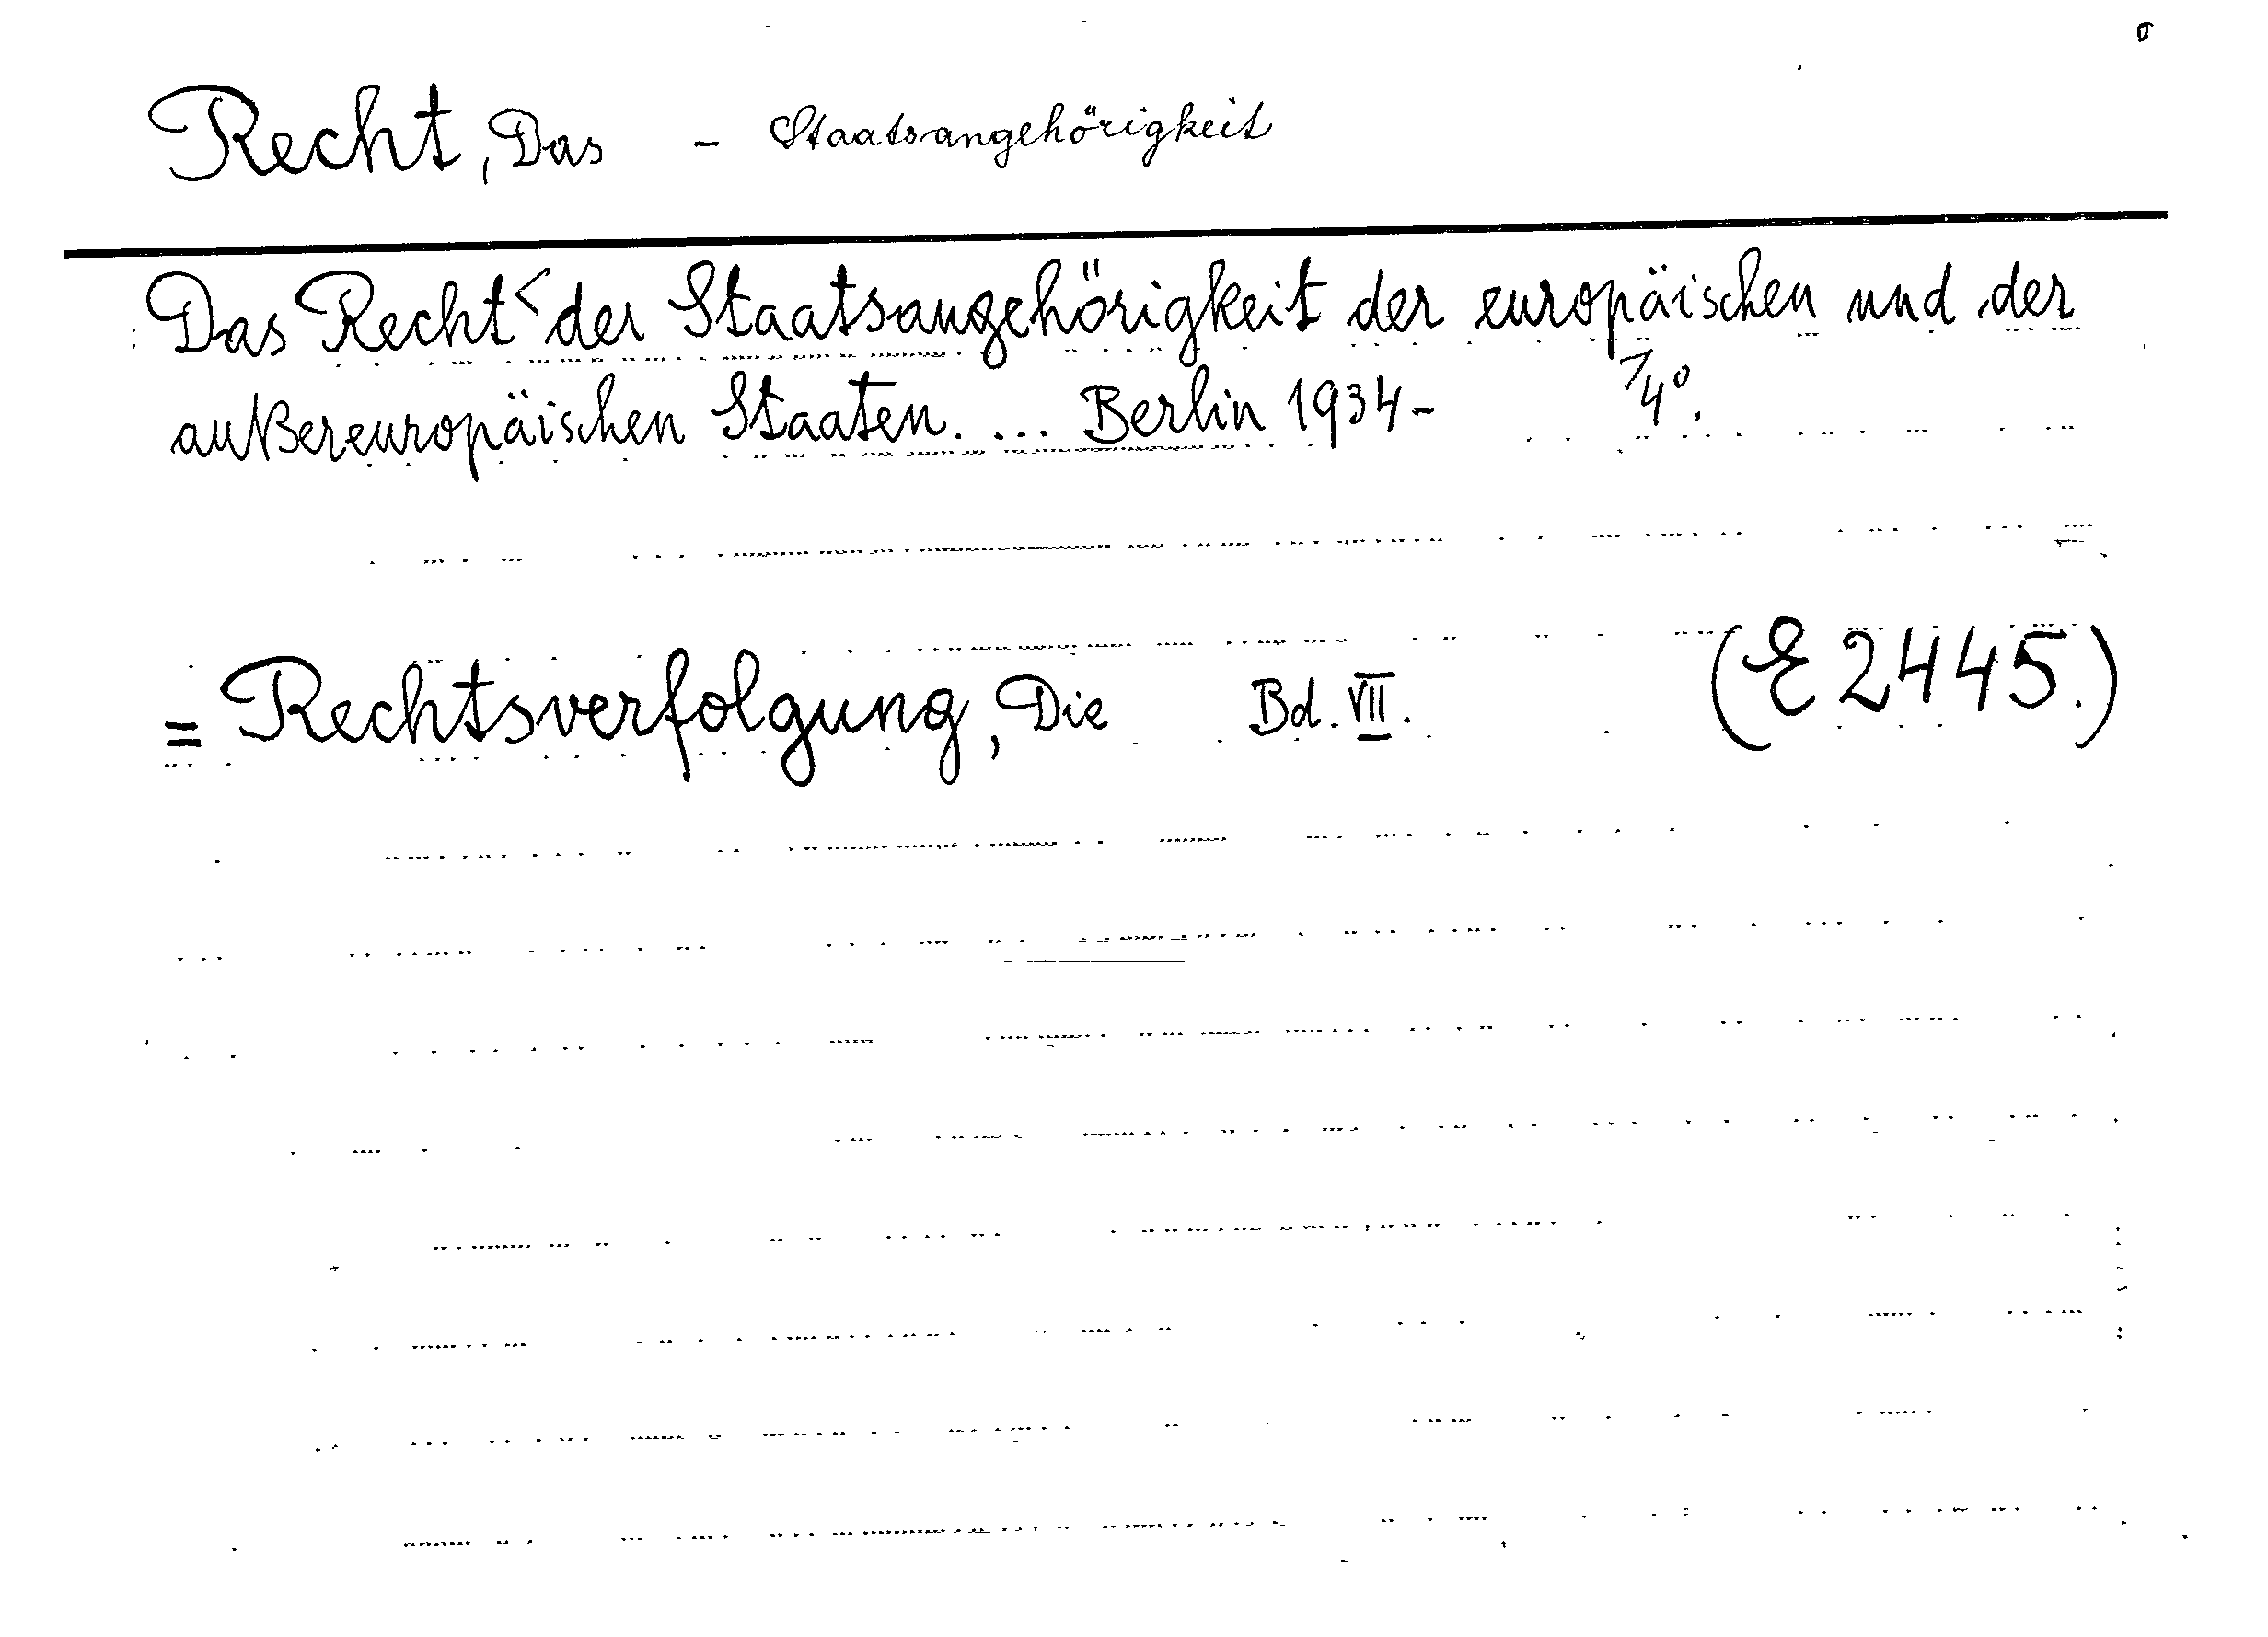 Recht, Das - Staatsangehörigkeit
Das Recht < der Staatsangehörigkeit der europäischen und der
außereuropäischen Staaten. ... Berlin 1934- 4°.
= Rechtsverfolgung, Die Bd. VII. (E 2445.)